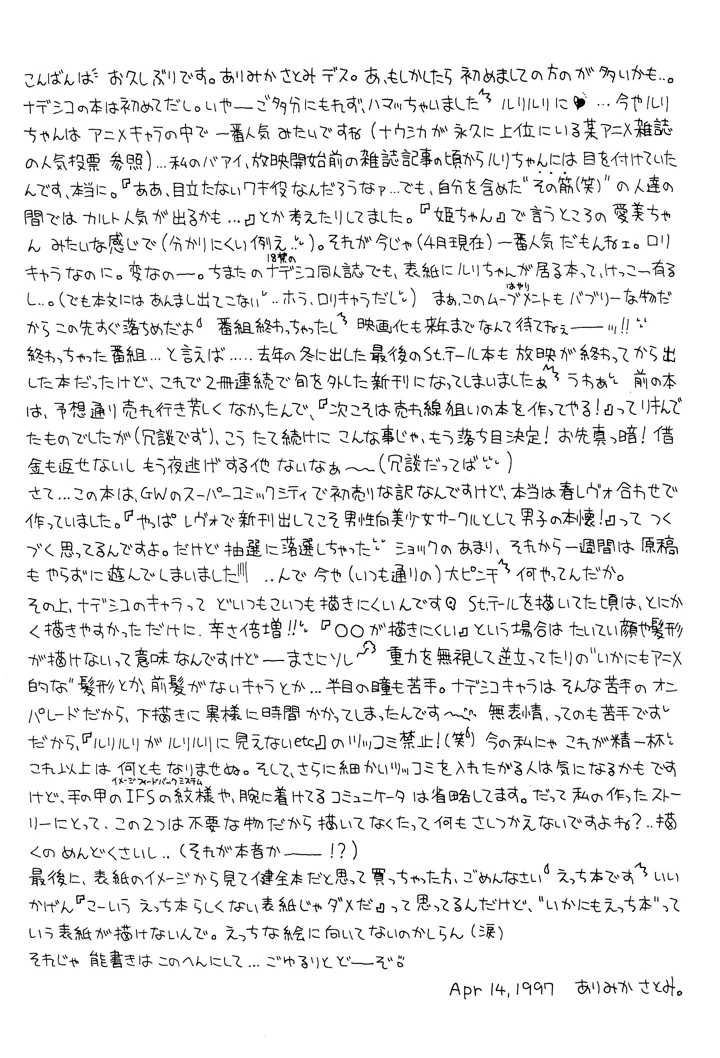 こんばんは お久しぶりです。ありみかさとみデス。あ、もしかしたら 初めましての方のが 多いかも..。
ナデシコの本は初めてだし。いやーご多分にもれず、ハマッちゃいました ルリルリに♥ …今やルリ
ちゃんは アニメキャラの中で 一番人気 みたいですね (ナウシカが 永久に上位にいる某アニメ雑誌
の人気投票 参照)…私のバアイ、放映開始前の雑誌記事の頃からルリちゃんには 目を付けていた
んです、本当に。『ああ、目立たないワキ役なんだろうなァ…でも、自分を含めた"その筋(笑)"の人達の
間では カルト人気が出るかも…』とか考えたりしてました。『『姫ちゃん』で言うところの 愛美ちゃ
ん みたいな感じで(分かりにくい例え)。それが今じゃ(4月現在)一番人気だもんねェ。ロリ
キャラなのに。変なのー。ちまたの18禁のナデシコ同人誌でも、表紙にルリちゃんが居る本って、けっこー有る
し..。(でも本文にはあんまし出てこない..ホラ、ロリキャラだし) まぁ、このムーブメント(はやり)もバブリーな物だ
から この先すぐ落ちめだよ 番組終わっちゃったし 映画化も来年までなんて待てねェーーッ!!
終わっちゃった番組…と言えば.....去年の冬に出した最後のSt.テール本も 放映が終わってから出
した本だったけど、これで2冊連続で旬を外した新刊になってしまいましたぁ うわぁ 前の本
は、予想通り売れ行き芳しくなかったんで、『次こそは売れ線狙いの本を作ってやる!』ってリキんで
たものでしたが(冗談です)、こう たて続けに こんな事じゃ、もう落ち目決定! お先真っ暗! 借
金も返せないし もう夜逃げする他 ないなぁ〜(冗談だってば)
さて…この本は、GWのスーパーコミックシティで初売りな訳なんですけど、本当は春レヴォ合わせで
作っていました。『やっぱ レヴォで新刊出してこそ男性向美少女サークルとして男子の本懐!』って つく
づく思ってるんですよ。だけど抽選に落選しちゃった ショックのあまり、それから一週間は 原稿
もやらずに遊んでしまいました ..んで 今や(いつも通りの)大ピンチ 何やってんだか。
その上、ナデシコのキャラって どいつもこいつも描きにくいんです St.テールを描いてた頃は、とにか
く描きやすかっただけに、辛さ倍増!! 『○○が描きにくい』という場合は たいてい顔や髪形
が描けないって意味なんですけどーまさにソレ 重力を無視して逆立ってたりの"いかにもアニメ
的な"髪形とか、前髪がないキャラとか…半目の瞳も苦手。ナデシコキャラは そんな苦手のオン
パレードだから、下描きに異様に時間かかってしまったんです〜 無表情、ってのも苦手です
だから、『ルリルリがルリルリに見えないetc』のツッコミ禁止!(笑) 今の私にゃ これが精一杯
これ以上は 何ともなりませぬ。そして、さらに細かいツッコミを入れたがる人は気になるかもです
けど、手の甲のIFS(イメージフィードバックシステム)の紋様や、腕に着けてるコミュニケータ は省略してます。だって私の作ったストー
リーにとって、この2つは不要な物だから描いてなくたって何もさしつかえないですよね?..描
くのめんどくさいし..(それが本音かーー!?)
最後に、表紙のイメージから見て健全本だと思って買っちゃった方、ごめんなさい えっち本です いい
かげん『こーいう えっち本らしくない表紙じゃダメだ』って思ってるんだけど、"いかにもえっち本"って
いう表紙が描けないんで。えっちな絵に向いてないのかしらん(涙)
それじゃ 能書きは このへんにして… ごゆるりと どーぞ
Apr 14,1997 ありみか さとみ。